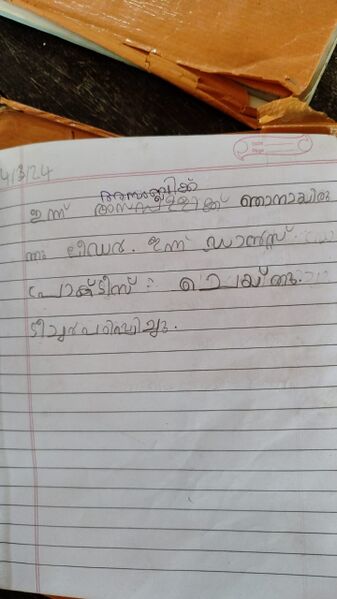 4/3/24
അസംബ്ലിക്ക്
ഇന്ന് അസമ്പ്ളിക്ക് ഞാനായിരു
ന്നു ലീഡർ. ഇന്ന് ഡാൻസ്
പ്രാക്ടീസ് : ചെയ്തു.
ടീച്ചർ പഠിപ്പിച്ചു.